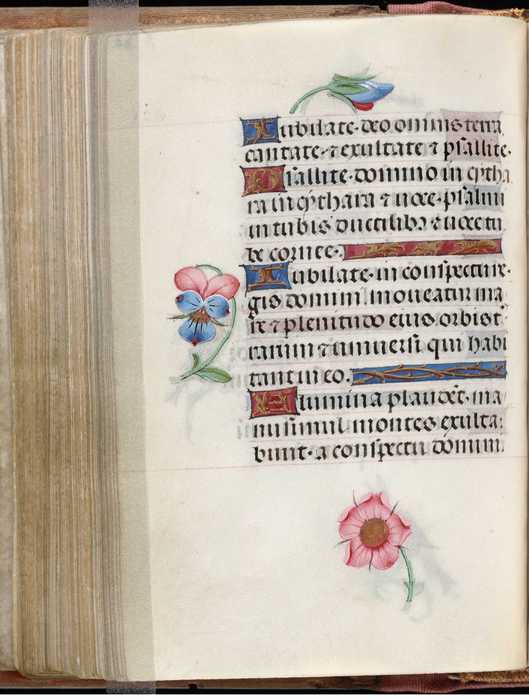 Iubilate deo omnis terra
cantate ⁊ exultate ⁊ psallite.
Psallite domino in cytha
ra in cythara ⁊ uoce psalmi
in tubis ductilibꝫ ⁊ uoce tu
be cornee.
Iubilate in conspectu re
gis domini moueatur ma
re ⁊ plenitudo eius orbis t
rarum ⁊ uniuersi qui habi
tant in eo.
Flumina plaudēt ma
nu simul montes exulta
bunt a conspectu domini